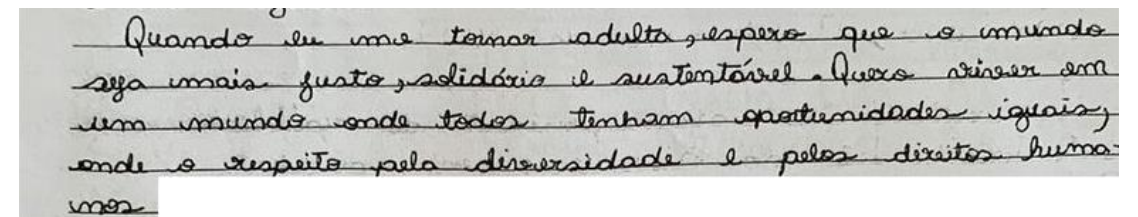 Quando eu me tornar adulta, espero que o mundo
seja mais justo, solidário e sustentável. Quero viver em
um mundo onde todos tenham oportunidades iguais,
onde o respeito pela diversidade e pelos direitos huma-
nos